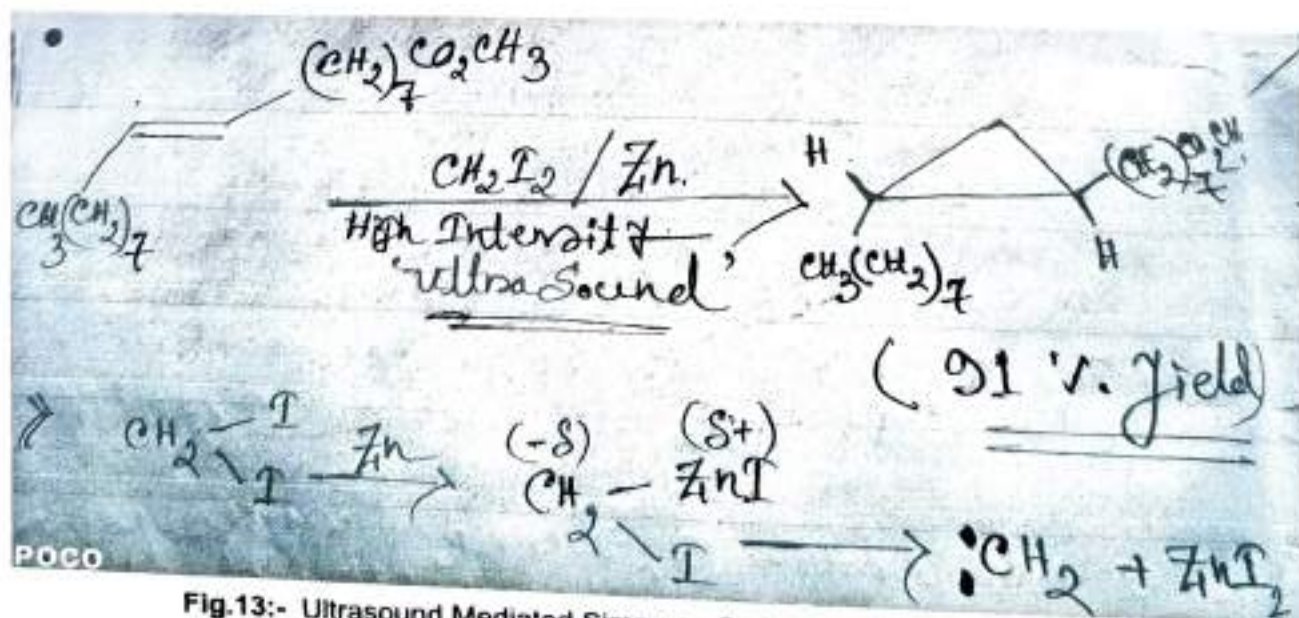 (CH2)7CO2CH3
CH3(CH2)7
CH2I2 / Zn.
High Intensity
'Ultra Sound'
H
(CH2)7CO2CH
CH3(CH2)7
H
(91 %. Yield)
CH2 I
I
Zn
(-δ) (δ+)
CH2 — ZnI
I
:CH2 + ZnI2
POCO
Fig.13:- Ultrasound Mediated